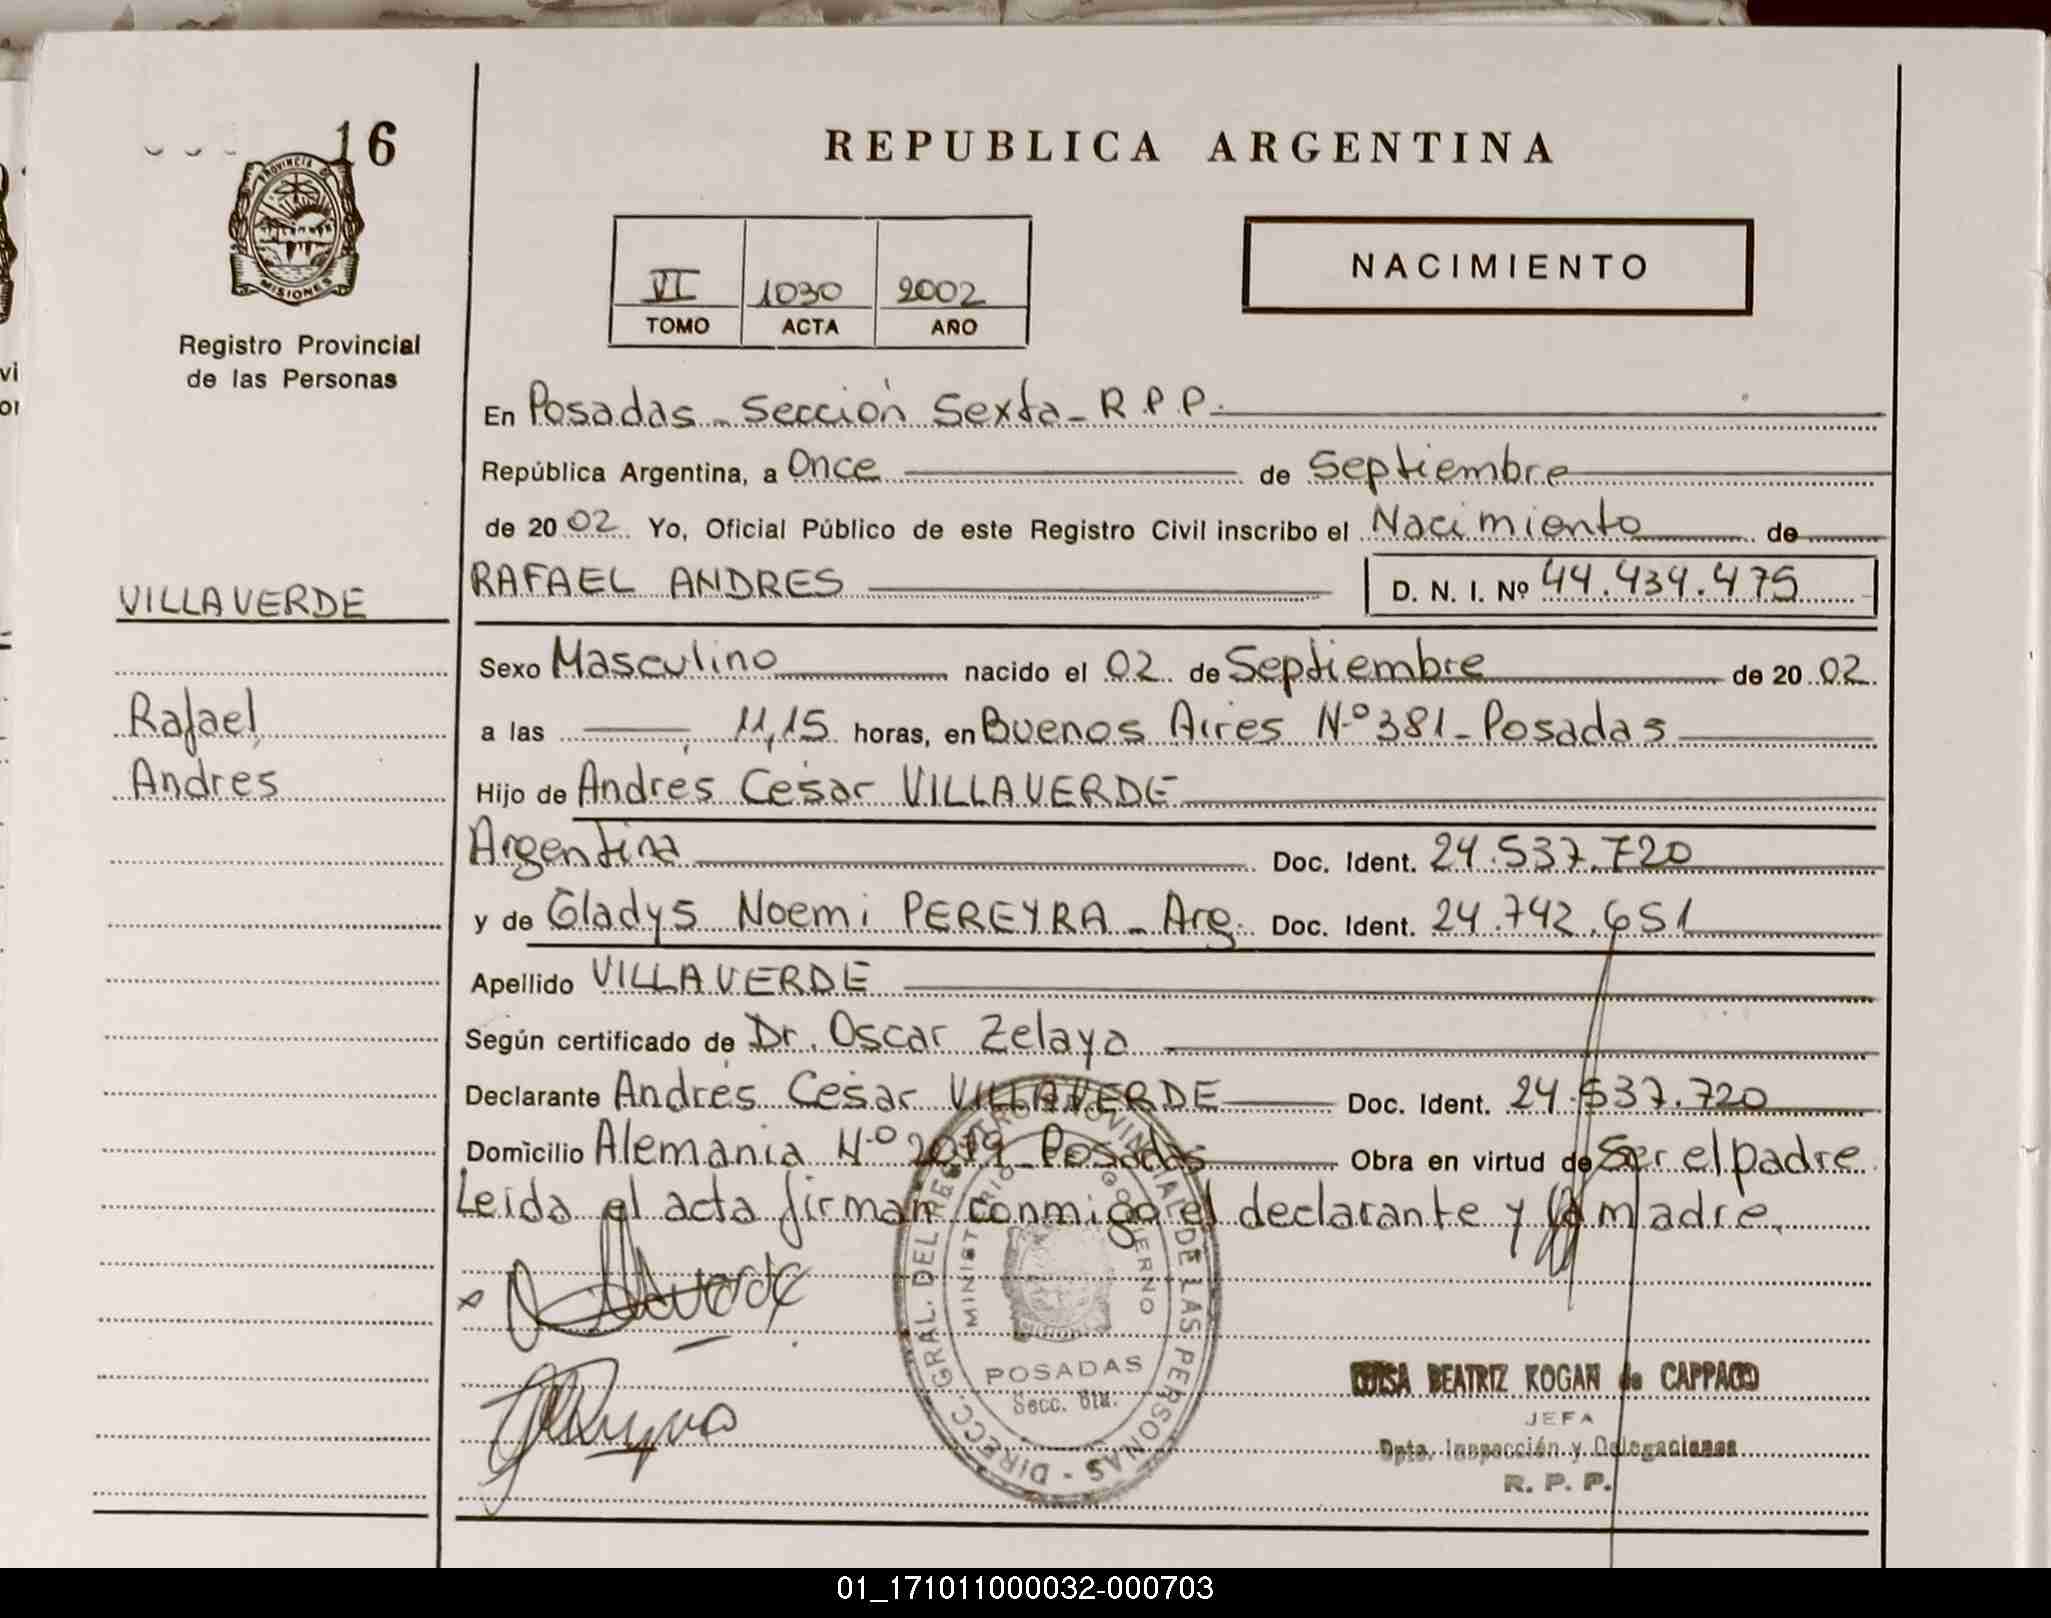 16
PROVINCIA DE
MISIONES
Registro Provincial
de las Personas
VILLAVERDE
Rafael
Andres
REPUBLICA ARGENTINA
VI 1030 2002
TOMO ACTA AÑO
NACIMIENTO
En Posadas - Sección Sexta - R.P.P.
República Argentina, a Once de Septiembre
de 2002 Yo, Oficial Público de este Registro Civil inscribo el Nacimiento de
RAFAEL ANDRES D. N. I. Nº 44.434.475
Sexo Masculino nacido el 02 de Septiembre de 2002
a las 11,15 horas, en Buenos Aires Nº 381 - Posadas
Hijo de Andrés César VILLAVERDE
Argentina Doc. Ident. 24.537.720
y de Gladys Noemi PEREYRA - Arg. Doc. Ident. 24.742.651
Apellido VILLAVERDE
Según certificado de Dr. Oscar Zelaya
Declarante Andrés César VILLAVERDE Doc. Ident. 24.537.720
Domicilio Alemania Nº 2019 - Posadas Obra en virtud de Ser el padre
Leída el acta firman conmigo el declarante y la madre.
DIRECC. GRAL. DEL REGISTRO PROVINCIAL DE LAS PERSONAS -
MINISTERIO GOBIERNO
POSADAS
Secc. 6ta.
LUISA BEATRIZ KOGAN de CAPPACO
JEFA
Dpto. Inspección y Delegaciones
R. P. P.
01_171011000032-000703